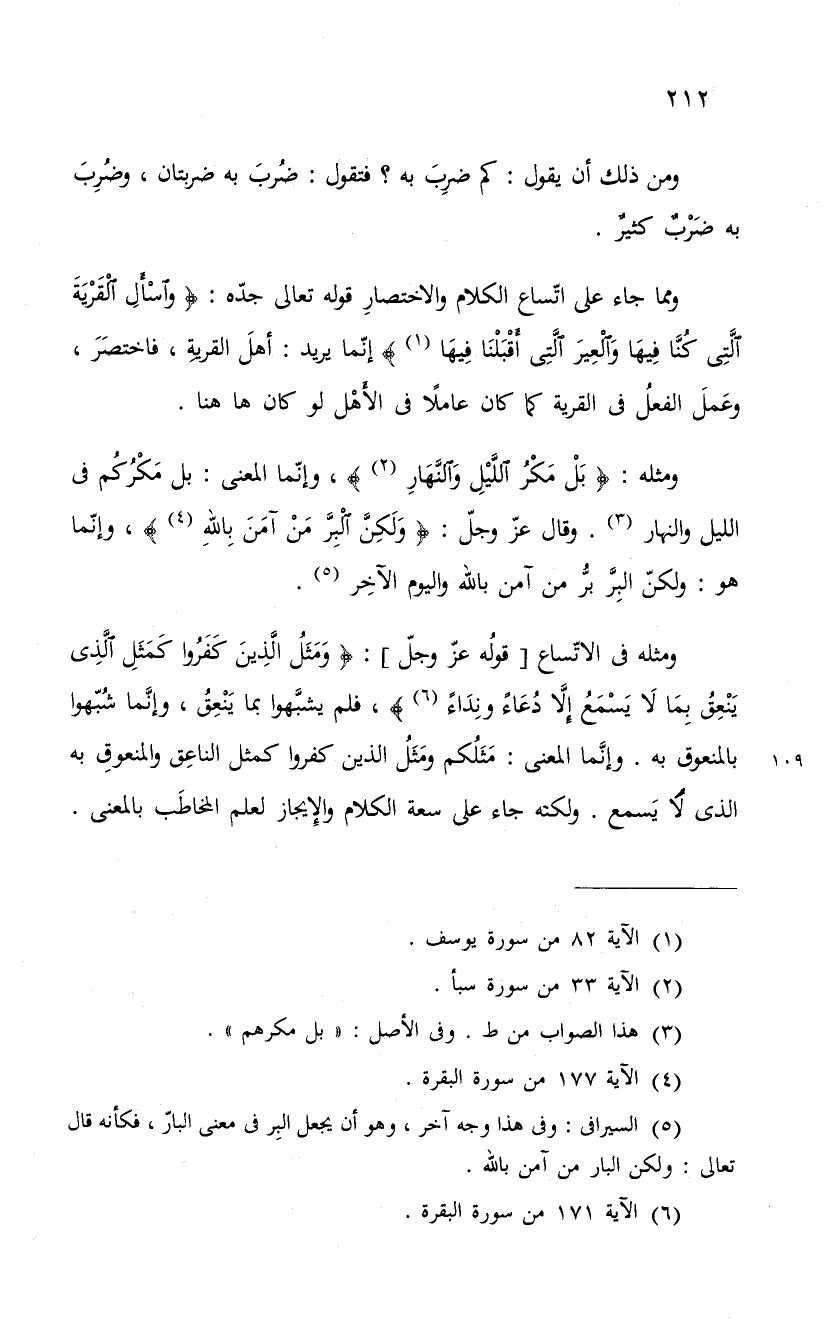 ٢١٢
ومن ذلك أن يقول : كم ضرِبَ به ؟ فتقول : ضُربَ به ضربتان ، وضُرِبَ
به ضَرْبٌ كثيرٌ .
ومما جاء على اتّساع الكلام والاختصارِ قوله تعالى جدّه : ﴿ وٱسْأَلِ ٱلْقَرْيَةَ
ٱلَّتِى كُنَّا فِيهَا وَٱلْعِيرَ ٱلَّتِى أَقْبَلْنَا فِيهَا (١) ﴾ إنّما يريد : أهلَ القريةِ ، فاختصَرَ ،
وعَملَ الفعلُ فى القرية كما كان عاملًا فى الأَهْل لو كان ها هنا .
ومثله : ﴿ بَلْ مَكْرُ ٱللَّيْلِ وَٱلنَّهَارِ (٢) ﴾ ، وإنّما المعنى : بل مَكْرُكُم فى
الليل والنهار (٣) . وقال عزّ وجلّ : ﴿ وَلَكِنَّ ٱلْبِرَّ مَنْ آمَنَ بِاللهِ (٤) ﴾ ، وإنّما
هو : ولكنّ البِرَّ بِرُّ من آمن بالله واليوم الآخِر (٥) .
ومثله فى الاتّساع [ قولُه عزّ وجلّ ] : ﴿ وَمَثَلُ الَّذِينَ كَفَرُوا كَمَثَلِ ٱلَّذِى
يَنْعِقُ بِمَا لَا يَسْمَعُ إِلَّا دُعَاءً ونِدَاءً (٦) ﴾ ، فلم يشبَّهوا بما يَنْعِقُ ، وإنَّما شُبّهوا
بالمنعوق به . وإنَّما المعنى : مَثَلُكم ومَثَلُ الذين كفروا كمثل الناعِق والمنعوقِ به ١٠٩
الذى لَا يَسمع . ولكنه جاء على سعة الكلام والإِيجاز لعلم المخاطَب بالمعنى .
(١) الآية ٨٢ من سورة يوسف .
(٢) الآية ٣٣ من سورة سبأ .
(٣) هذا الصواب من ط . وفى الأصل : « بل مكرهم » .
(٤) الآية ١٧٧ من سورة البقرة .
(٥) السيرافى : وفى هذا وجه آخر ، وهو أن يجعل البِر فى معنى البارّ ، فكأنه قال
تعالى : ولكن البار من آمن بالله .
(٦) الآية ١٧١ من سورة البقرة .